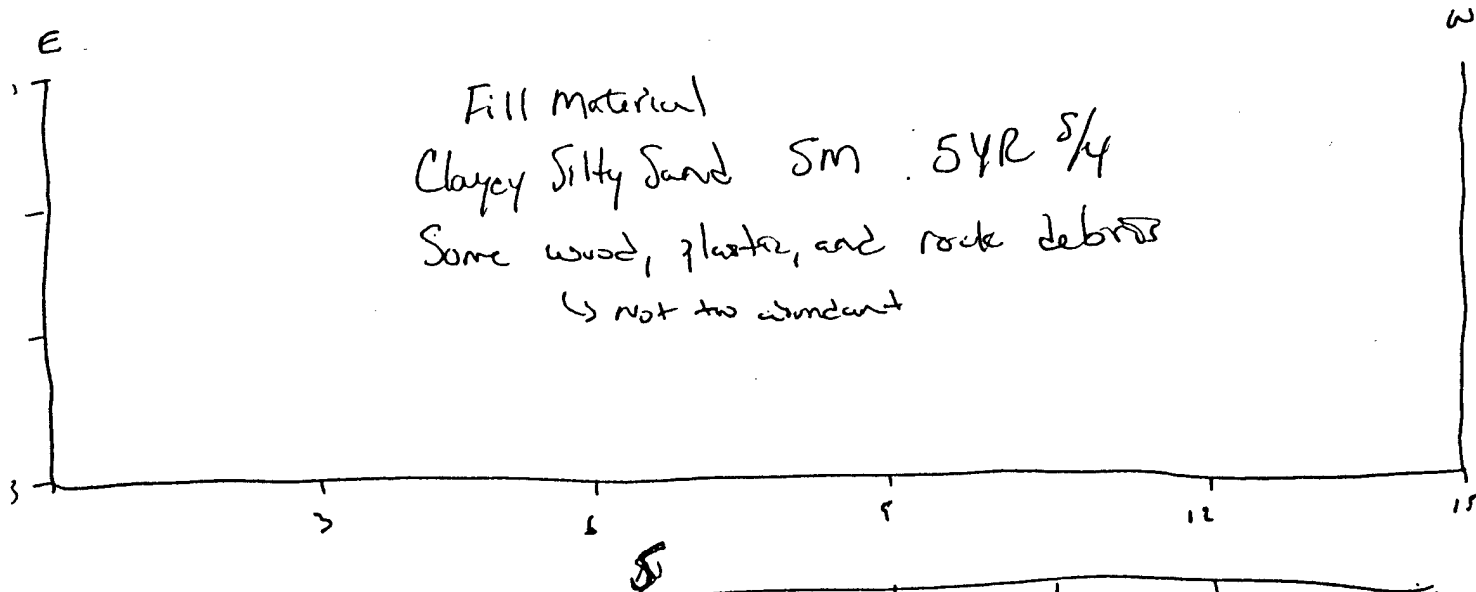 E W
Fill Material
Clayey Silty Sand SM . 5YR 5/4
Some wood, plastic, and rock debris
↳ Not too abundant
3
3 6 9 12 15